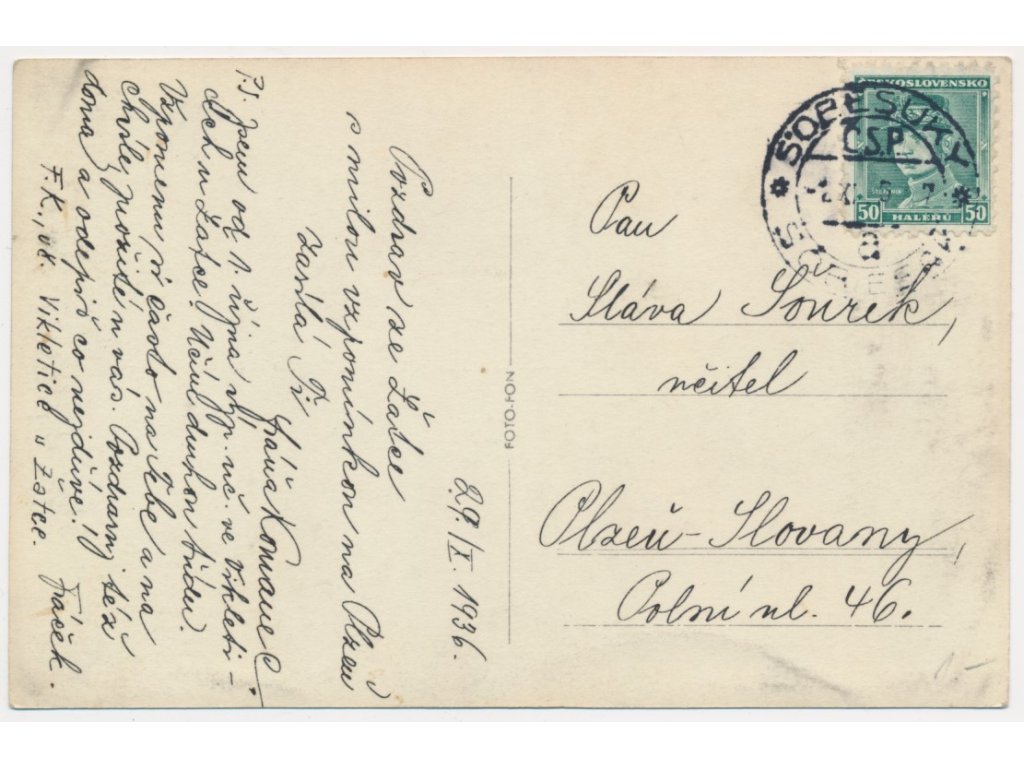 Pozdrav ze Žatce
s milou vzpomínkou na Plzeň
zasílá Ti
Fráňa
29./I. 1936.
P.S. Jsem od 1. října výp. uč. ve Vikleti-
cích u Žatce. Učím druhou třídu.
Vzpomenu si často na Tebe a na
chvíle, prožité u vás. Pozdravuj též
doma a odepiš co nejdříve!
F.K., uč. Vikletice u Žatce. Fráček.
FOTO-FON
ČESKOSLOVENSKO
50 HALÉŘŮ 50
SOBĚSUKY
Č.S.P.
Pan
Sláva Šourek,
učitel
Plzeň-Slovany,
Polní ul. 46.